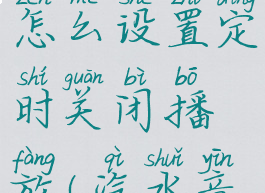 zěn me shè zhì dìng
怎么设置定
shí guān bì bō
时关闭播
fàng qì shuǐ yīn
放(汽水音